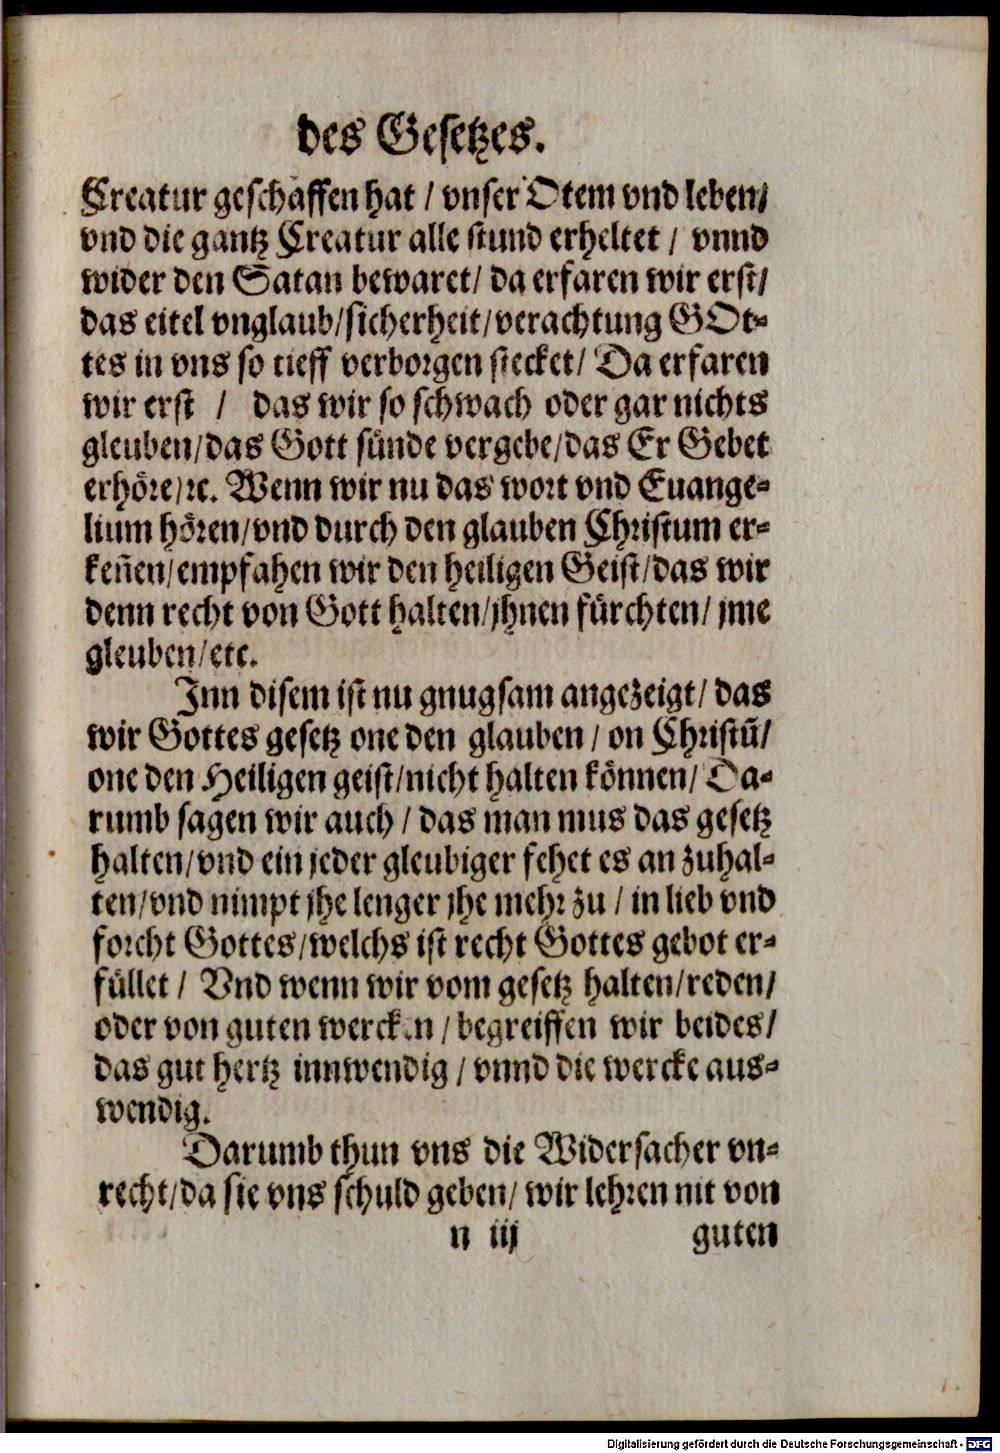 des Gesetzes.
Creatur geschaffen hat / vnser Otem vnd leben/
vnd die gantz Creatur alle stund erheltet / vnnd
wider den Satan bewaret/ da erfaren wir erst/
das eitel vnglaub/sicherheit/verachtung GOt-
tes in vns so tieff verborgen stecket/ Da erfaren
wir erst / das wir so schwach oder gar nichts
gleuben/das Gott sünde vergebe/das Er Gebet
erhöre/ꝛc. Wenn wir nu das wort vnd Euange-
lium hören/vnd durch den glauben Christum er-
keñen/empfahen wir den heiligen Geist/das wir
denn recht von Gott halten/jhnen fürchten/ jme
gleuben/etc.
Jnn disem ist nu gnugsam angezeigt/ das
wir Gottes gesetz one den glauben / on Christũ/
one den Heiligen geist/nicht halten können/ Da-
rumb sagen wir auch / das man mus das gesetz
halten/vnd ein jeder gleubiger fehet es an zuhal-
ten/vnd nimpt jhe lenger jhe mehr zu / in lieb vnd
forcht Gottes/welchs ist recht Gottes gebot er-
füllet / Vnd wenn wir vom gesetz halten/reden/
oder von guten wercken / begreiffen wir beides/
das gut hertz innwendig / vnnd die wercke aus-
wendig.
Darumb thun vns die Widersacher vn-
recht/da sie vns schuld geben/ wir lehren nit von
n iij guten
Digitalisierung gefördert durch die Deutsche Forschungsgemeinschaft - DFG